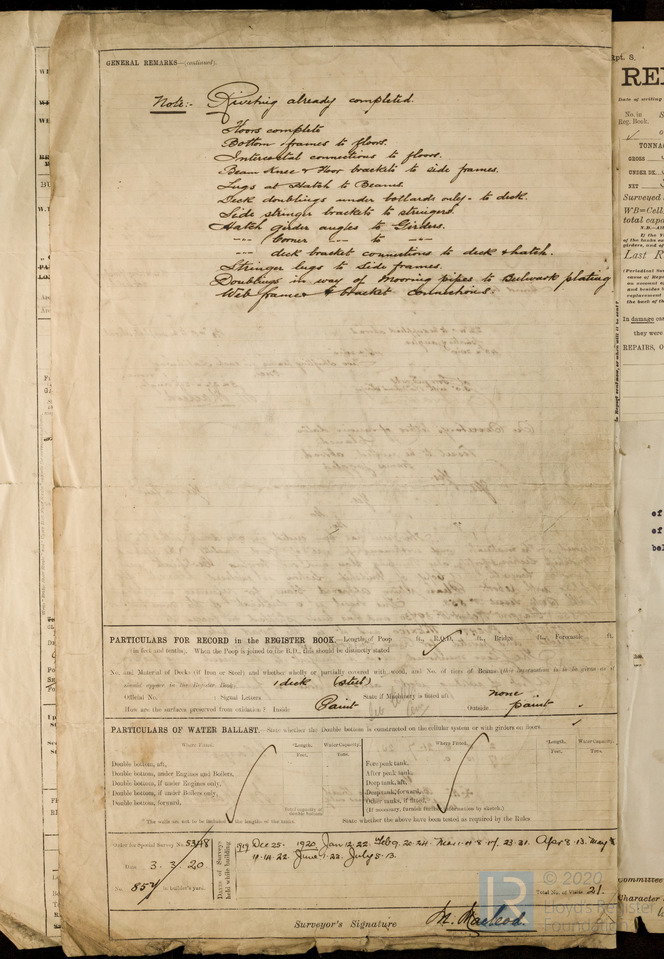 GENERAL REMARKS—(continued)
Note:- Riveting already completed.
Floors complete
Bottom frames to floors.
Intercostal connections to floors.
Beam Knee & floor brackets to side frames.
Lugs at Hatch to Beams.
Deck doublings under bollards only - to deck.
Side stringer brackets to stringers.
Hatch girder angles to Girders.
--- Corner --- to ---
--- deck bracket connections to deck & hatch.
Stringer lugs to side frames.
Doublings in way of mooring pipes to Bulwark plating
Web frames & bracket connections.
PARTICULARS FOR RECORD in the REGISTER BOOK.—Length of Poop ft., R.Q.D. ft., Bridge ft., Forecastle ft.
(in feet and tenths). When the Poop is joined to the B.D., this should be distinctly stated
No. and Material of Decks (if Iron or Steel) and whether wholly or partially covered with wood, and No. of tiers of Beams (this information is to be given as it
should appear in the Register Book) 1 deck (steel)
Official No. ; Signal Letters State if Machinery is fitted aft none
How are the surfaces preserved from oxidation? Inside Paint Outside paint
PARTICULARS OF WATER BALLAST.—State whether the Double bottom is constructed on the cellular system or with girders on floors
Where Fitted. *Length. Feet. Water Capacity. Tons. Where Fitted. *Length. Feet. Water Capacity. Tons.
Double bottom, aft, Fore peak tank,
Double bottom, under Engines and Boilers, After peak tank,
Double bottom, if under Engines only, Deep tank, aft,
Double bottom, if under Boilers only, Deep tank, forward,
Double bottom, forward, Other tanks, if fitted,
(If necessary, furnish further information by sketch.)
Total capacity of double bottom
* The wells are not to be included in the lengths of the tanks. State whether the above have been tested as required by the Rules
Order for Special Survey No. 5348
Date 3. 3. 20.
No. 852 in builder's yard.
Dates of Surveys held while building
1919 Dec 25. 1920 Jan 12. 22. Feb 9. 20. 24. Mar 1. 4. 8. 17. 23. 31. Apr 8. 13. May
11. 14. 22. June 1. 23. July 5. 13.
Total No. of Visits 21.
Surveyor's Signature M. Macleod.
© 2020
Lloyd's Register
Foundation
Rpt. 8.
Date of writing
No. in
Reg. Book.
TONNA
GROSS
UNDER DK.
NET
Surveyed
WB=Cell
total capa
Last R
In damage cas
they were
REPAIRS, O
of
of
bel
Committee
Character